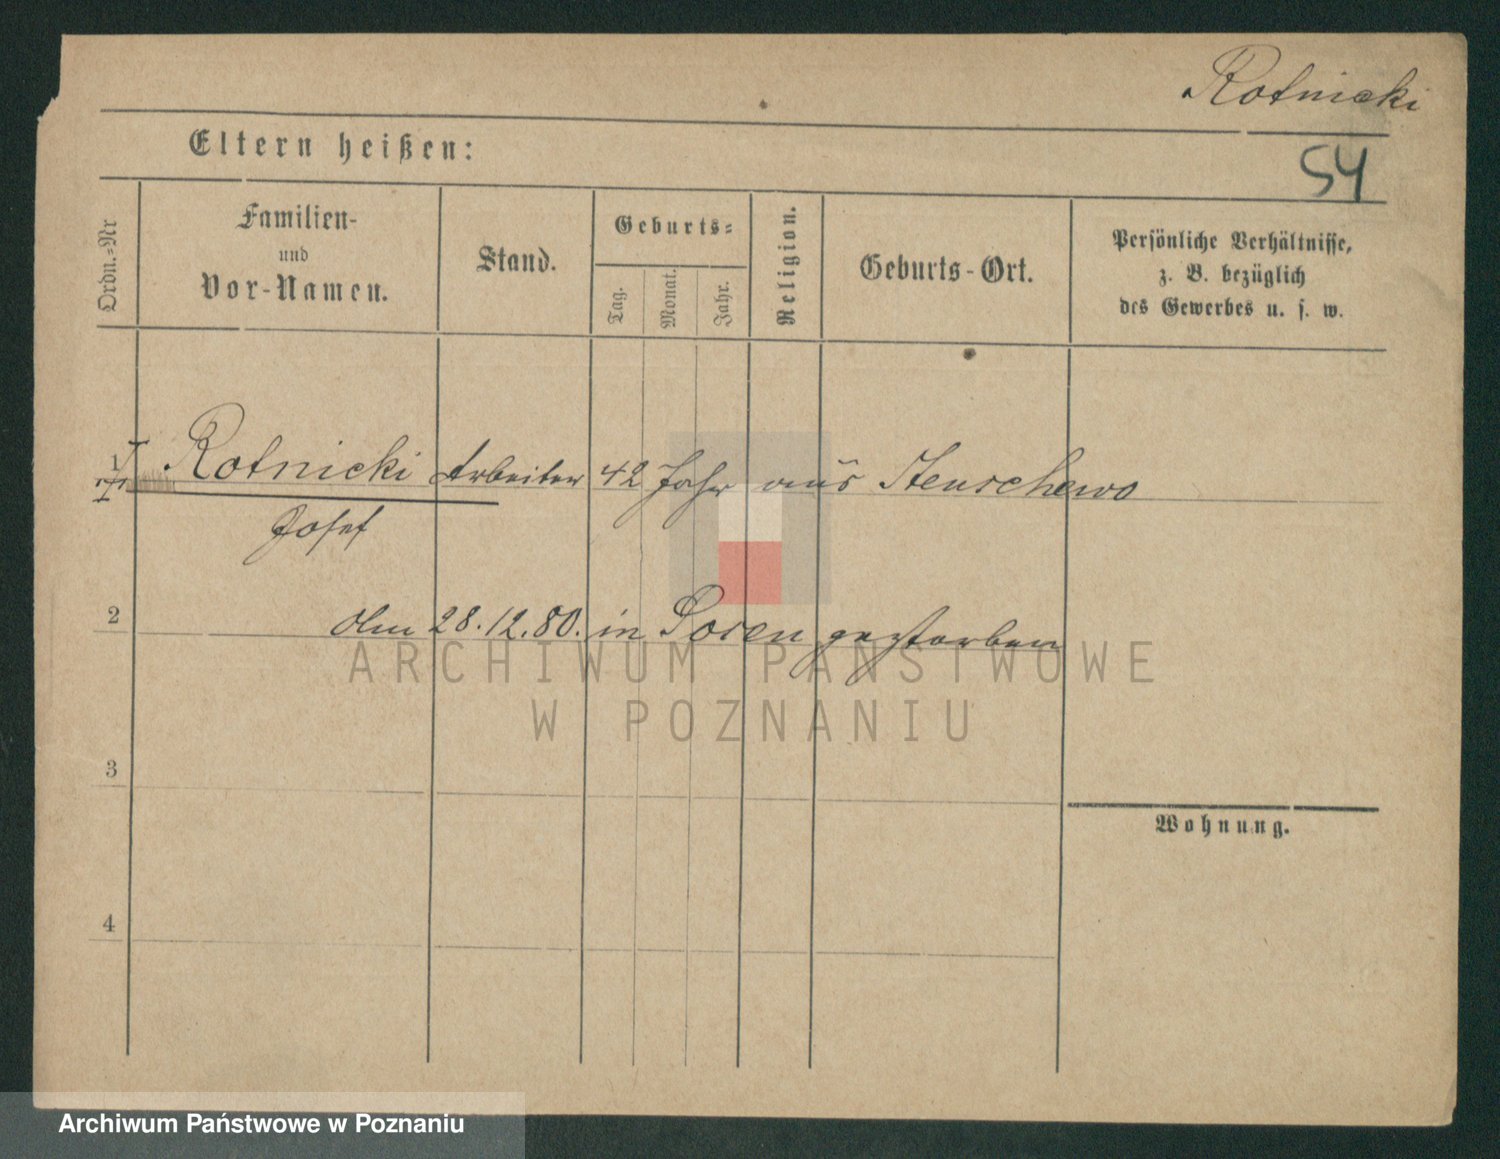 Rotnicki
Eltern heißen:
54
Ordn.-Nr
Familien-
und
Vor-Namen.
Stand.
Geburts-
Tag.
Monat.
Jahr.
Religion.
Geburts-Ort.
Persönliche Verhältnisse,
z. B. bezüglich
des Gewerbes u. s. w.
1
Rotnicki Arbeiter 42 Jahr aus Stenschewo
Josef
2
Am 28.12.80. in Posen gestorben
ARCHIWUM PAŃSTWOWE
W POZNANIU
3
Wohnung.
4
Archiwum Państwowe w Poznaniu